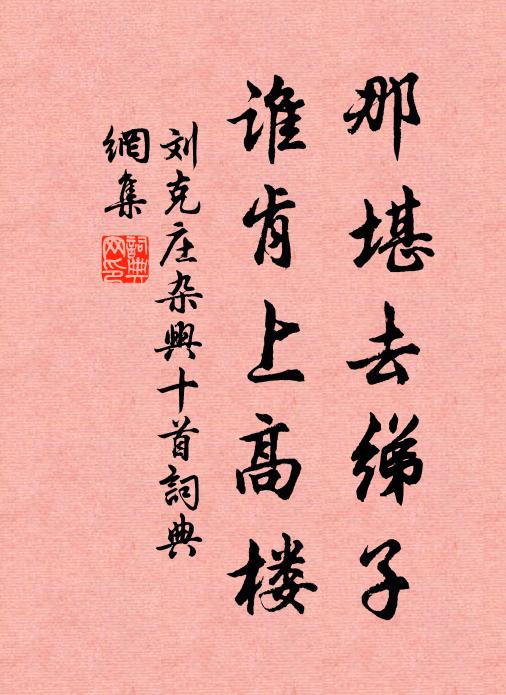 那堪去绨子
谁肯上高楼
刘克庄杂興十首詞典
網集
詞典
网印